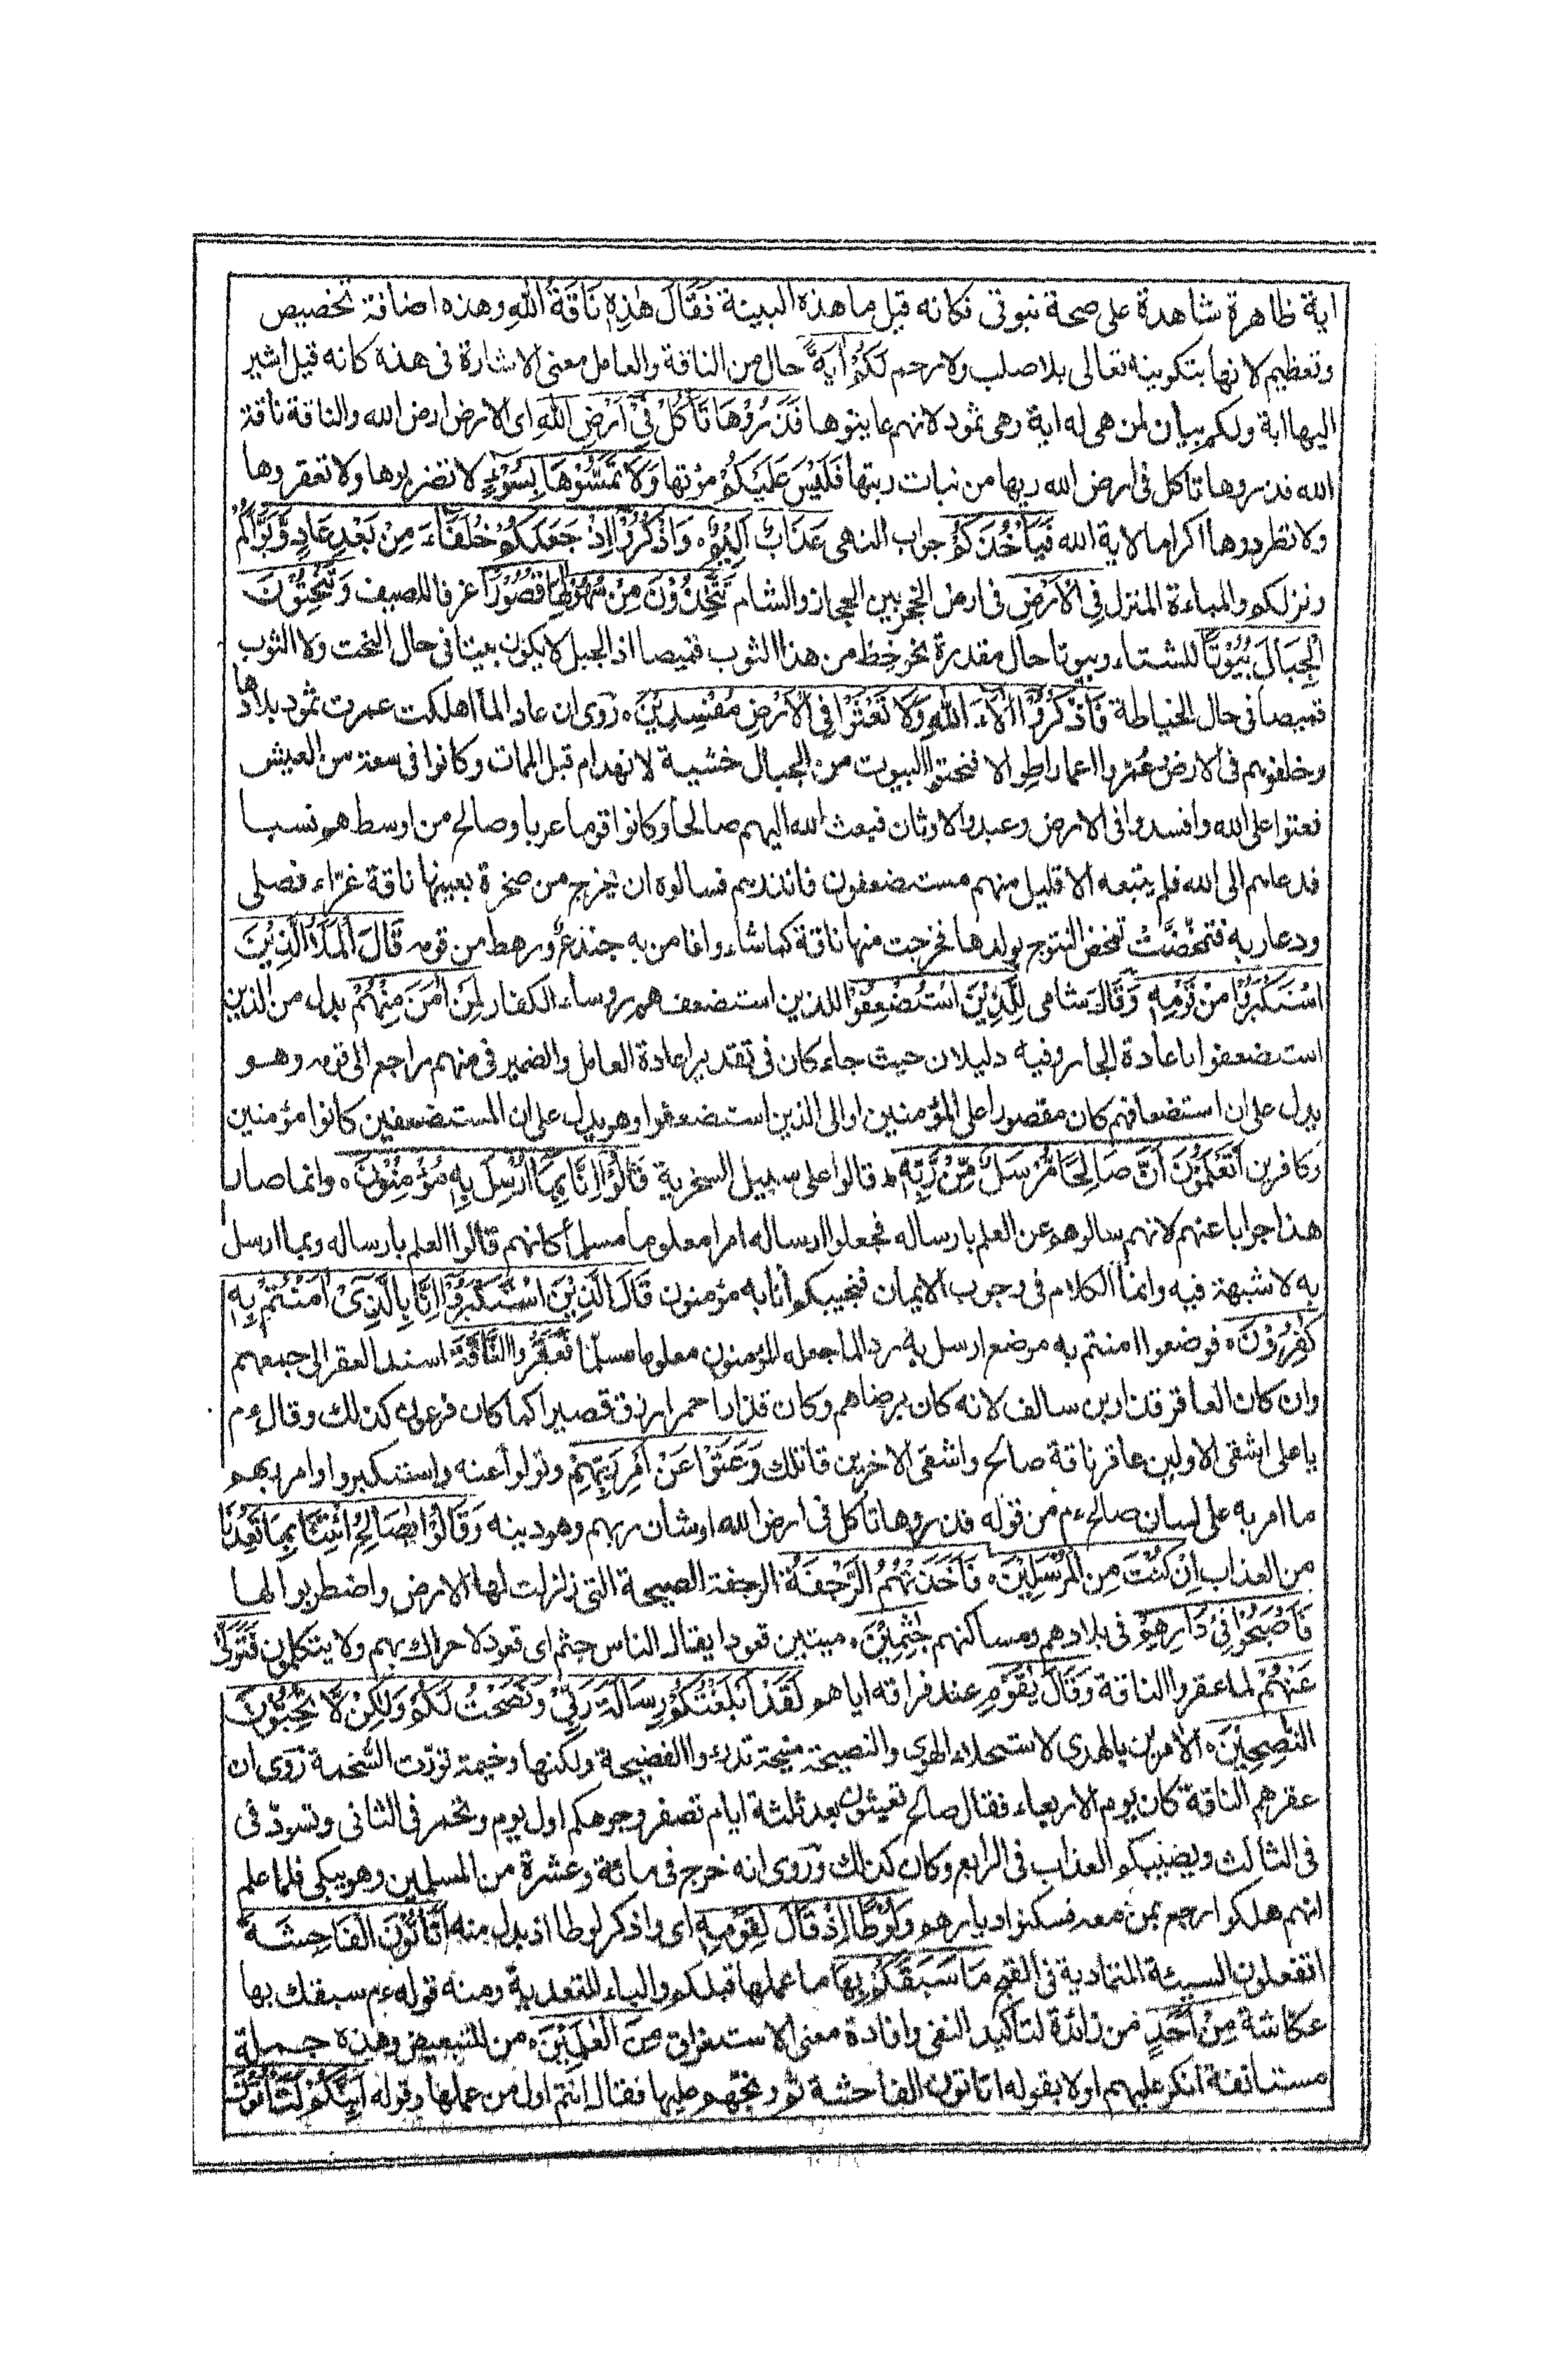 اية ظاهرة شاهدة على صحة نبوتى فكانه قيل ما هذه البينة فَقَالَ هٰذِهٖ نَاقَةُ اللّٰهِ وهذه اضافة تخصيص
وتعظيم لانها بتكوينه تعالى بلا صلب ولا رحم لَكُمْ اٰيَةً حال من الناقة والعامل معنى الاشارة فى هذه كانه قيل اشير
اليها اية ولكم بيان لمن هى له اية وهى ثمود لانهم عاينوها فَذَرُوْهَا تَأْكُلْ فِيْ اَرْضِ اللّٰهِ اى الارض ارض الله والناقة ناقة
الله فذروها تاكل فى ارض الله ربها من نبات ربتها فَلَيْسَ عَلَيْكُمْ مؤنتها وَلَا تَمَسُّوْهَا بِسُوْٓءٍ لا تضربوها ولا تعقروها
ولا تطردوها اكراما لاية الله فَيَأْخُذَكُمْ جواب النهى عَذَابٌ اَلِيْمٌ ه وَاذْكُرُوْٓا اِذْ جَعَلَكُمْ خُلَفَآءَ مِنْ بَعْدِ عَادٍ وَّبَوَّاَكُمْ
ونزلكم والمباءة المنزل فِي الْاَرْضِ فى ارض الحجر بين الحجاز والشام تَتَّخِذُوْنَ مِنْ سُهُوْلِهَا قُصُوْرًا غرفا للصيف وَتَنْحِتُوْنَ
الْجِبَالَ بُيُوْتًا للشتاء وبيوتا حال مقدرة نحو خط من هذا الثوب قميصا اذ الجبل لا يكون بيتا فى حال النحت ولا الثوب
قميصا فى حال الخياطة فَاذْكُرُوْٓا اٰلَآءَ اللّٰهِ وَلَا تَعْثَوْا فِي الْاَرْضِ مُفْسِدِيْنَ ه روى ان عادا لما اهلكت عمرت ثمود بلادها
وخلفوهم فى الارض وعمروا اعمارا طوالا فنحتوا البيوت من الجبال خشية الانهدام قبل الممات وكانوا فى سعة من العيش
فعتوا على الله وافسدوا فى الارض وعبدوا الاوثان فبعث الله اليهم صالحا وكانوا قوما عربا وصالح من اوسطهم نسبا
فدعاهم الى الله فلم يتبعه الا قليل منهم مستضعفون فانذرهم فسالوه ان يخرج من صخرة بعينها ناقة عشراء فصلى
ودعا ربه فتمخضت تمخض النتوج بولدها فخرجت منها ناقة كما شاءوا فامن به جندع ورهط من قومه قَالَ الْمَلَاُ الَّذِيْنَ
اسْتَكْبَرُوْا مِنْ قَوْمِهٖ وَقَالَ شامى لِلَّذِيْنَ اسْتُضْعِفُوْا للذين استضعفهم رؤساء الكفار لِمَنْ اٰمَنَ مِنْهُمْ بدل من الذين
استضعفوا باعادة الجار وفيه دليل ان حيث جاء كان فى تقدير اعادة العامل والضمير فى منهم راجع الى قومه وهو
يدل على ان استضعافهم كان مقصورا على المؤمنين او الى الذين استضعفوا وهو يدل على ان المستضعفين كانوا مؤمنين
وكافرين اَتَعْلَمُوْنَ اَنَّ صَالِحًا مُّرْسَلٌ مِّنْ رَّبِّهٖ ط قالوا على سبيل السخرية قَالُوْٓا اِنَّا بِمَآ اُرْسِلَ بِهٖ مُؤْمِنُوْنَ ه وانما صار
هذا جوابا عنهم لانهم سالوهم عن العلم بارساله فجعلوا ارساله امرا معلوما مسلما كانهم قالوا العلم بارساله وبما ارسل
به لا شبهة فيه وانما الكلام فى وجوب الايمان فنجيبكم انا به مؤمنون قَالَ الَّذِيْنَ اسْتَكْبَرُوْٓا اِنَّا بِالَّذِيْٓ اٰمَنْتُمْ بِهٖ
كٰفِرُوْنَ ه فوضعوا امنتم به موضع ارسل به رد الما جعله المؤمنون معلوما مسلما فَعَقَرُوا النَّاقَةَ اسند العقر الى جميعهم
وان كان العاقر قدار بن سالف لانه كان برضاهم وكان قدارا احمر ازرق قصيرا كما كان فرعون كذلك وقال ءم
يا على اشقى الاولين عاقر ناقة صالح واشقى الاخرين قاتلك وَعَتَوْا عَنْ اَمْرِ رَبِّهِمْ وتولوا عنه واستكبروا وامر ربهم
ما امر به على لسان صالح ءم من قوله فذروها تاكل فى ارض الله او شان ربهم وهو دينه وَقَالُوْا يٰصَالِحُ ائْتِنَا بِمَا تَعِدُنَآ
من العذاب اِنْ كُنْتَ مِنَ الْمُرْسَلِيْنَ ه فَاَخَذَتْهُمُ الرَّجْفَةُ الرجفة الصيحة التى زلزلت لها الارض واضطربوا لها
فَاَصْبَحُوْا فِيْ دَارِهِمْ فى بلادهم ومساكنهم جٰثِمِيْنَ ه ميتين قعودا يقال الناس جثم اى قعود لا حراك بهم ولا يتكلمون فَتَوَلّٰى
عَنْهُمْ لما عقروا الناقة وَقَالَ يٰقَوْمِ عند فراقه اياهم لَقَدْ اَبْلَغْتُكُمْ رِسَالَةَ رَبِّيْ وَنَصَحْتُ لَكُمْ وَلٰكِنْ لَّا تُحِبُّوْنَ
النّٰصِحِيْنَ ه الامرين بالهدى لاستحلاء الهوى والنصيحة منيحة تدرء الفضيحة ولكنها وخيمة تورث السخيمة روى ان
عقرهم الناقة كان يوم الاربعاء فقال صالح تعيشون بعد ثلثة ايام تصفر وجوهكم اول يوم وتحمر فى الثانى وتسود فى
فى الثالث ويصيبكم العذاب فى الرابع وكان كذلك وروى انه خرج فى مائة وعشرة من المسلمين وهو يبكى فلما علم
انهم هلكوا رجع بمن معه فسكنوا ديارهم وَلُوْطًا اِذْ قَالَ لِقَوْمِهٖ اى واذكر لوطا اذ بدل منه اَتَأْتُوْنَ الْفَاحِشَةَ
اتفعلون السيئة المتمادية فى القبح مَا سَبَقَكُمْ بِهَا ما عملها قبلكم والباء للتعدية ومنه قوله ءم سبقك بها
عكاشة مِنْ اَحَدٍ من زائدة لتاكيد النفى وافادة معنى الاستغراق مِّنَ الْعٰلَمِيْنَ ه من للتبعيض وهذه جملة
مستانفة انكر عليهم اولا بقوله اتاتون الفاحشة ثم وبخهم عليها فقال انتم اول من عملها وقوله اَئِنَّكُمْ لَتَأْتُوْنَ